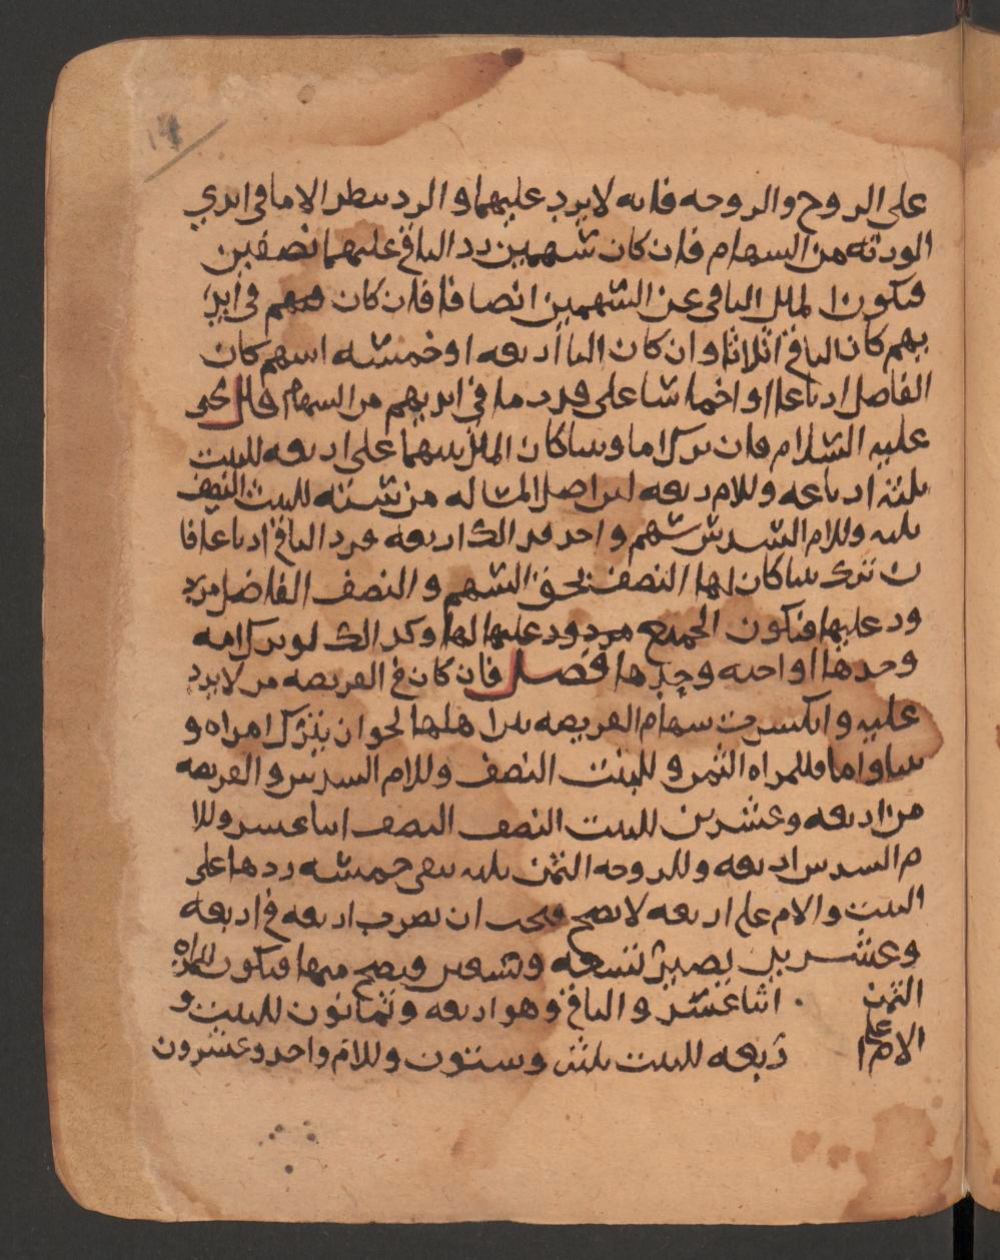 على الروح والروحه فانه لا يرد عليهما والرد ينظر الا ما في ايدي
الورثه من السهام فان كان سهمين رد الباقي عليهما نصفين
فيكون المال الباقي عن السهمين انصافا فان كان في ايد
يهم كان الباقي اثلاثا وان كان اربعه او خمسه اسهم كان
الفاصل ارباعا او اخماسا على قدر ما في ايديهم من السهام قال
عليه السلام فان ترك اما وبنتا كان المال بينهما على اربعه للبنت
ثلثة ارباعه وللام ربعه لان اصل المساله من سته للبنت النصف
ثلثه وللام السدس سهم واحد فذالك اربعه فرد الباقي ارباعا فا
ن ترك بنتا كان لها النصف بحق السهم والنصف الفاضل مرد
ود عليها فتكون الجميع مردود عليها لها وكذالك لو ترك امه
وحدها او اخته وحدها فصل فان كان في الفريضه من لا يرد
عليه وانكسرت سهام الفريضه على اهلها نحو ان يترك امراه و
بنتا واما فللمراه الثمن وللبنت النصف وللام السدس والفريضه
من اربعه وعشرين للبنت النصف النصف اثنا عشر وللا
م السدس اربعه وللزوجه الثمن ثلثه يبقى خمسه ردها على
البنت والام على اربعه لا يصح فيجب ان تضرب اربعه في اربعه
وعشرين يصير ستة وتسعين فيصح منها فيكون للمراه
الثمن اثنا عشر والباقي وهو اربعه وثمانون للبنت و
الام على اربعه للبنت ثلث وستون وللام واحد وعشرون